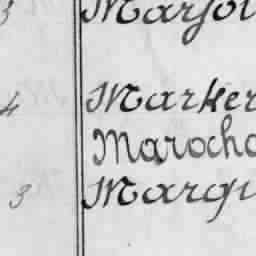 3 Marjol
4 Marker
Marocha
3 Margu